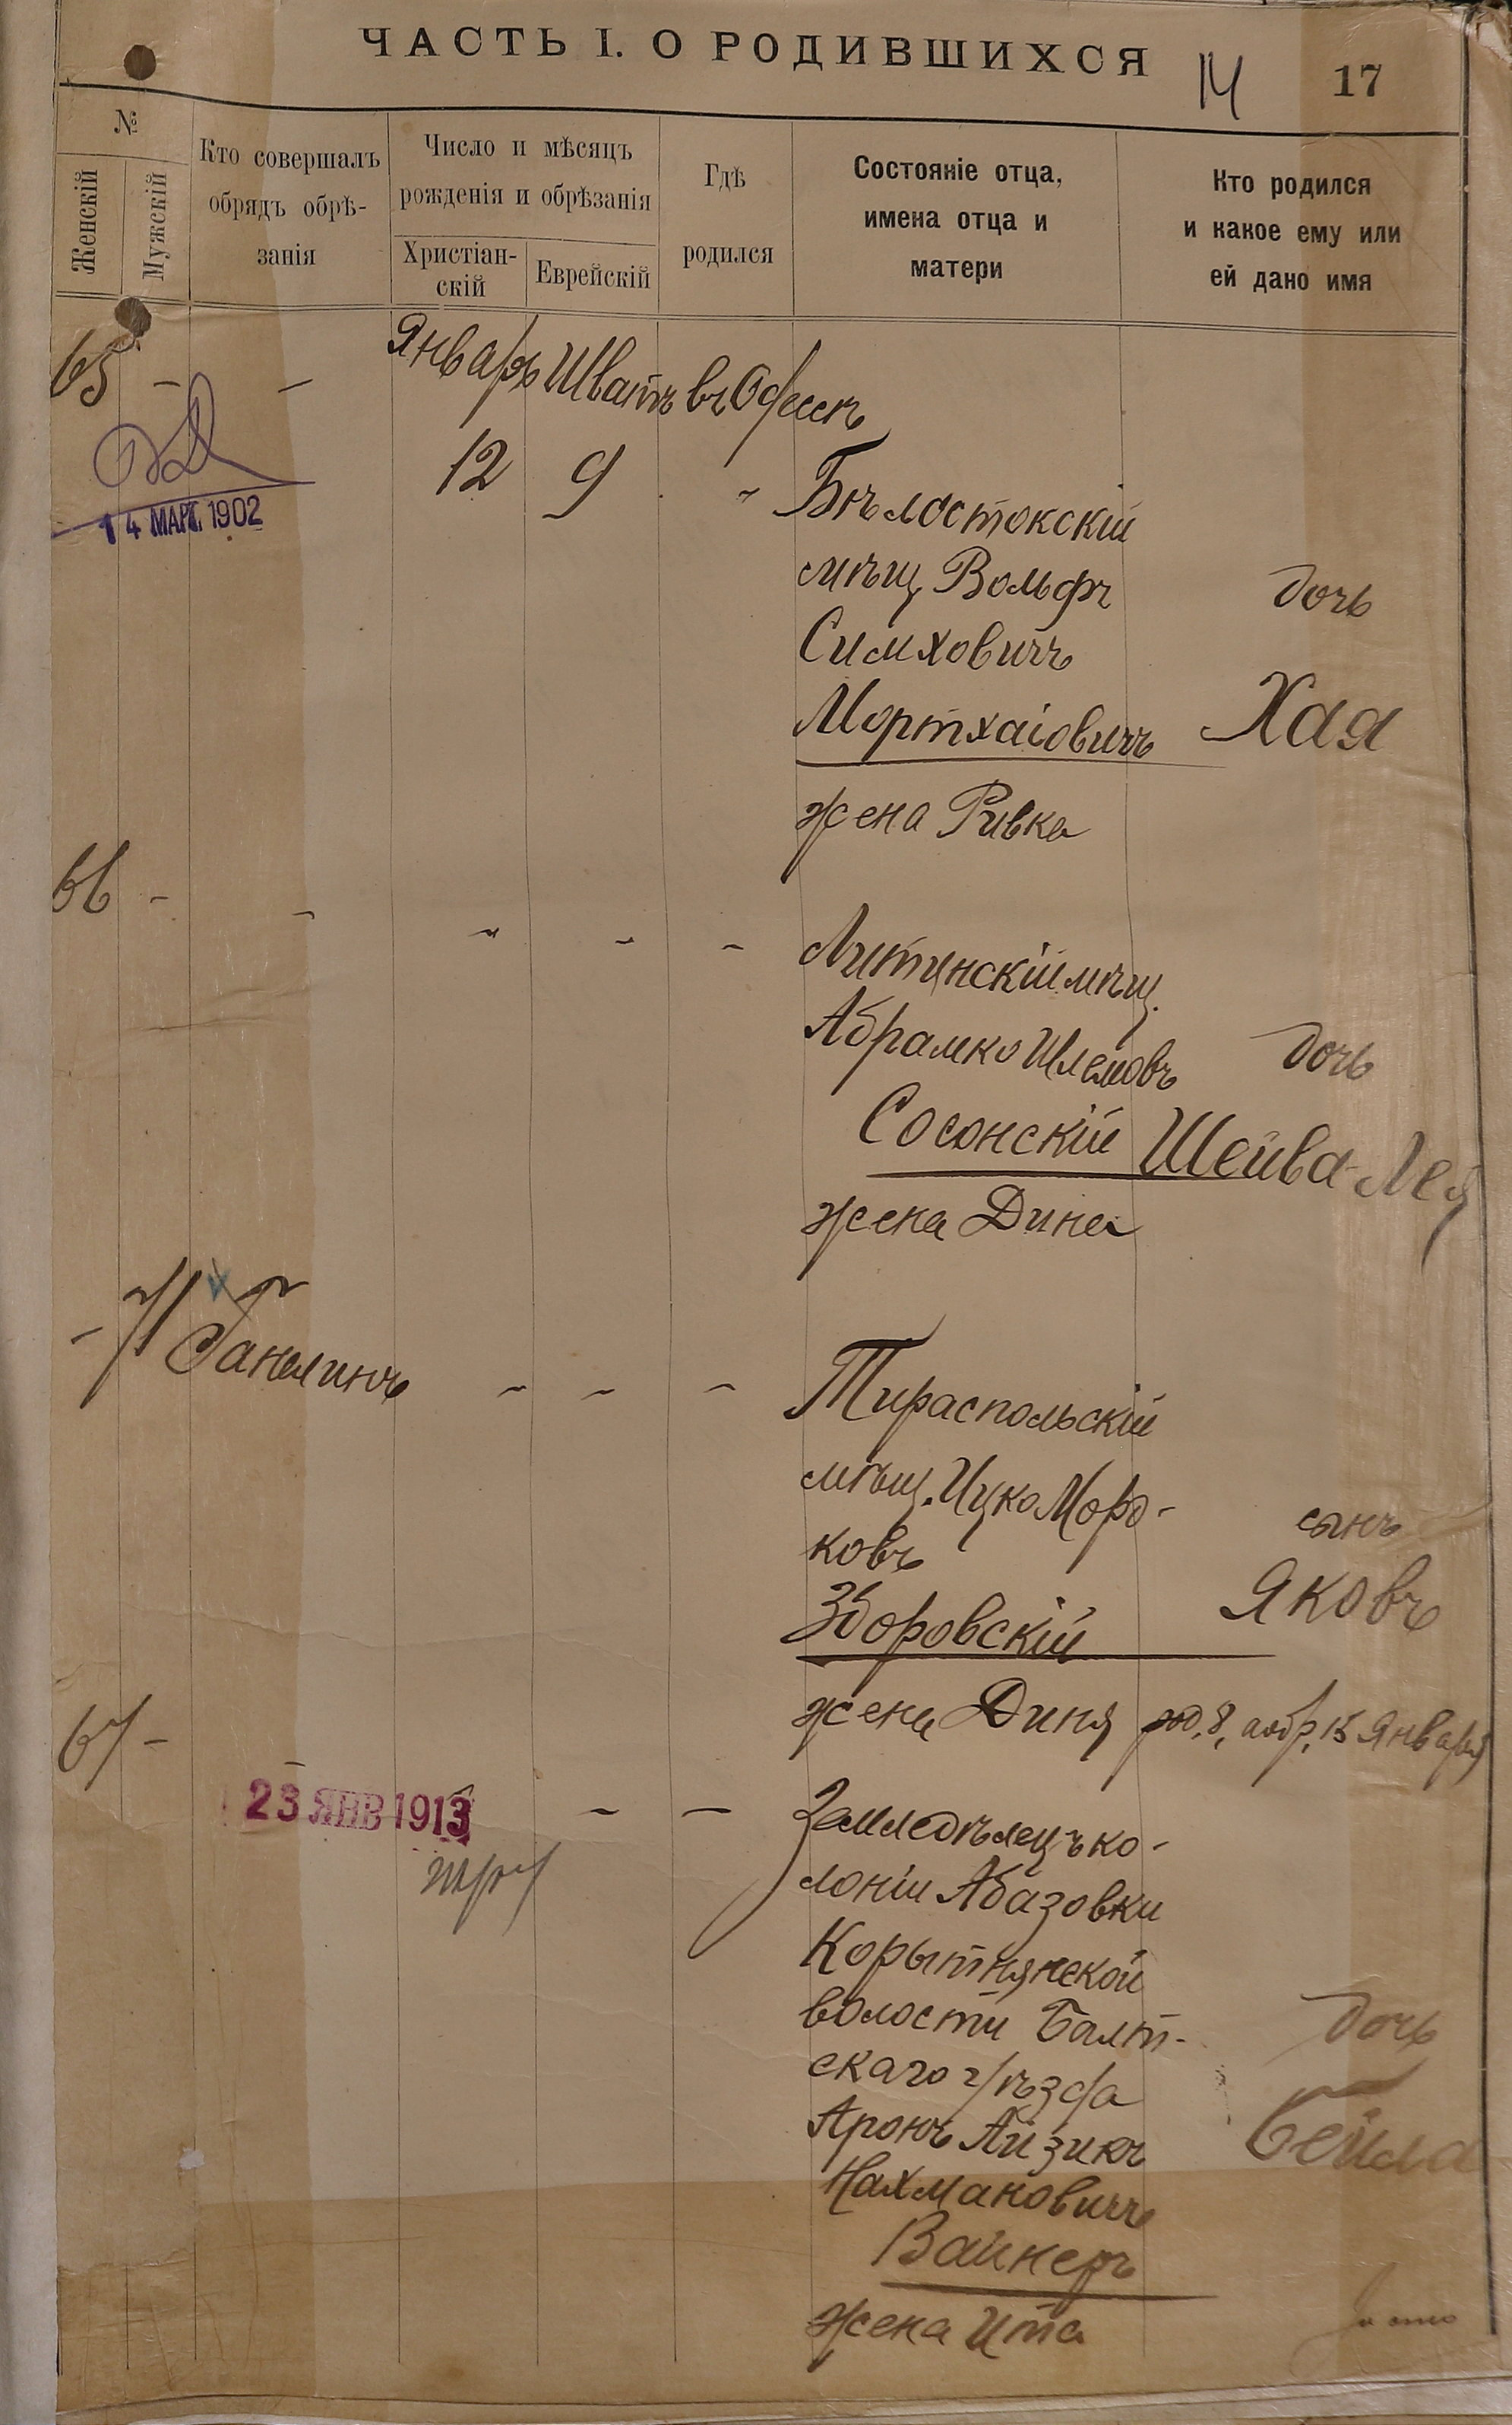 ЧАСТЬ I. О РОДИВШИХСЯ
14
17
№
Женскій
Мужскій
Кто совершалъ
обрядъ обрѣ-
занія
Число и мѣсяцъ
рожденія и обрѣзанія
Христіан-
скій
Еврейскій
Гдѣ
родился
Состояніе отца,
имена отца и
матери
Кто родился
и какое ему или
ей дано имя
65 - - Январь Шватъ въ Одессѣ
14 МАР. 1902
12 9 - Бѣлостокскій
мѣщ. Вольфъ дочь
Симховичъ
Мортхаіовичъ Хая
жена Ривка
66 - - - - - Литинскій мѣщ.
Абрамко Шлемовъ дочь
Сосонскій Шейва-Лея
жена Дина
-
Ганелинъ - - - Тираспольскій
мѣщ. Ицко Морд-
ковъ сынъ
Зборовскій Яковъ
жена Диня род. 8, а обр. 15 Января
67 - -
23 ЯНВ 1913 - - Земледѣлецъ ко-
лоніи Абазовки
Корытнянской
волости Балт- дочь
скаго уѣзда
Аронъ Айзикъ Бейла
Нахмановичъ
Вайнеръ
жена Ита